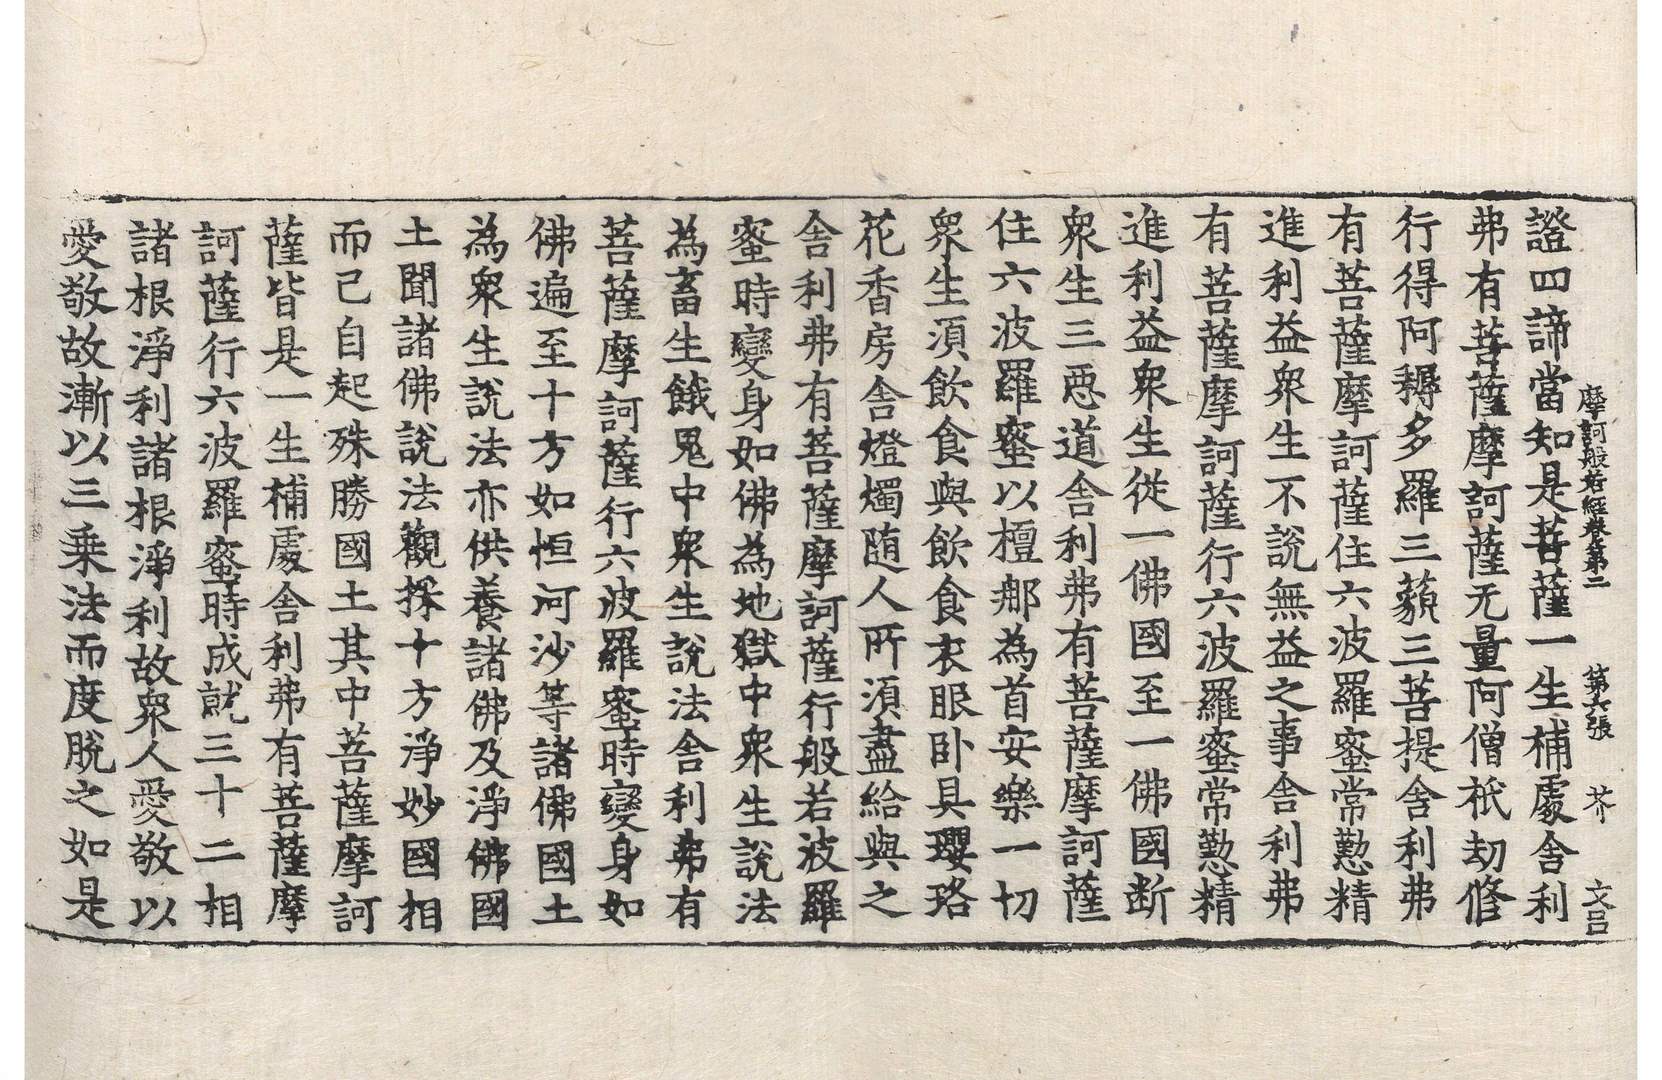 摩訶般若經卷第二 第六張 芥 文呂
證四諦當知是菩薩一生補處舍利
弗有菩薩摩訶薩无量阿僧祇劫修
行得阿耨多羅三藐三菩提舍利弗
有菩薩摩訶薩住六波羅蜜常懃精
進利益衆生不說無益之事舍利弗
有菩薩摩訶薩行六波羅蜜常懃精
進利益衆生從一佛國至一佛國断
衆生三惡道舍利弗有菩薩摩訶薩
住六波羅蜜以檀那為首安樂一切
衆生須飲食與飲食衣眼卧具瓔珞
花香房舍燈燭随人所須盡給與之
舍利弗有菩薩摩訶薩行般若波羅
蜜時變身如佛為地獄中衆生說法
為畜生餓鬼中衆生說法舍利弗有
菩薩摩訶薩行六波羅蜜時變身如
佛遍至十方如恒河沙等諸佛國土
為衆生說法亦供養諸佛及淨佛國
土聞諸佛說法觀採十方淨妙國相
而已自起殊勝國土其中菩薩摩訶
薩皆是一生補處舍利弗有菩薩摩
訶薩行六波羅蜜時成就三十二相
諸根淨利諸根淨利故衆人愛敬以
愛敬故漸以三乗法而度脫之如是